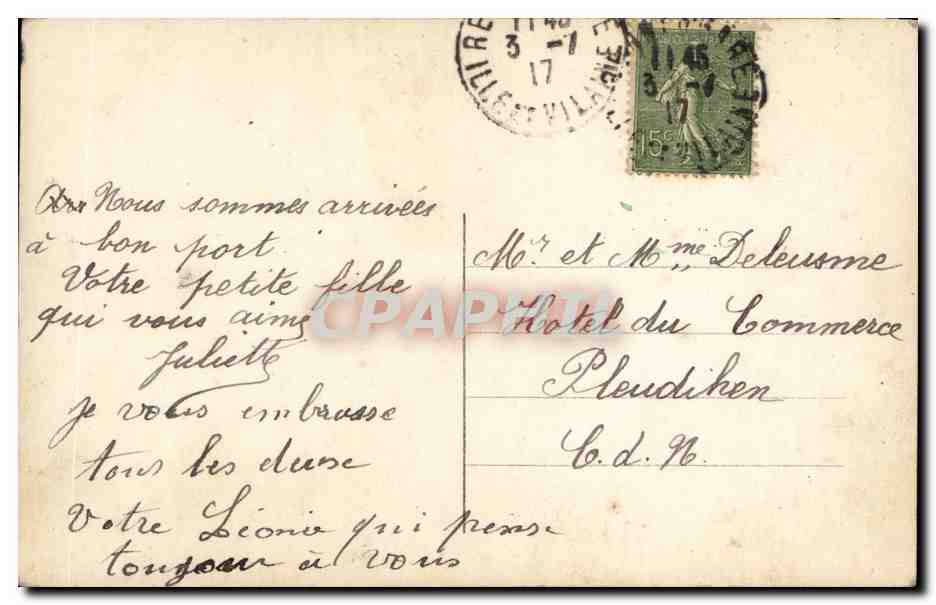 11 45
3 -1
17
ILLE ET VILAINE
11 45
3 -1
17
15c
Nous sommes arrivées
à bon port
Votre petite fille
qui vous aime
Juliette
je vous embrasse
tous les deuse
Votre Léonie qui pense
toujour à vous
CPAPHIL
Mr et Mme Deleusme
Hotel du Commerce
Pleudihen
C. d. N.